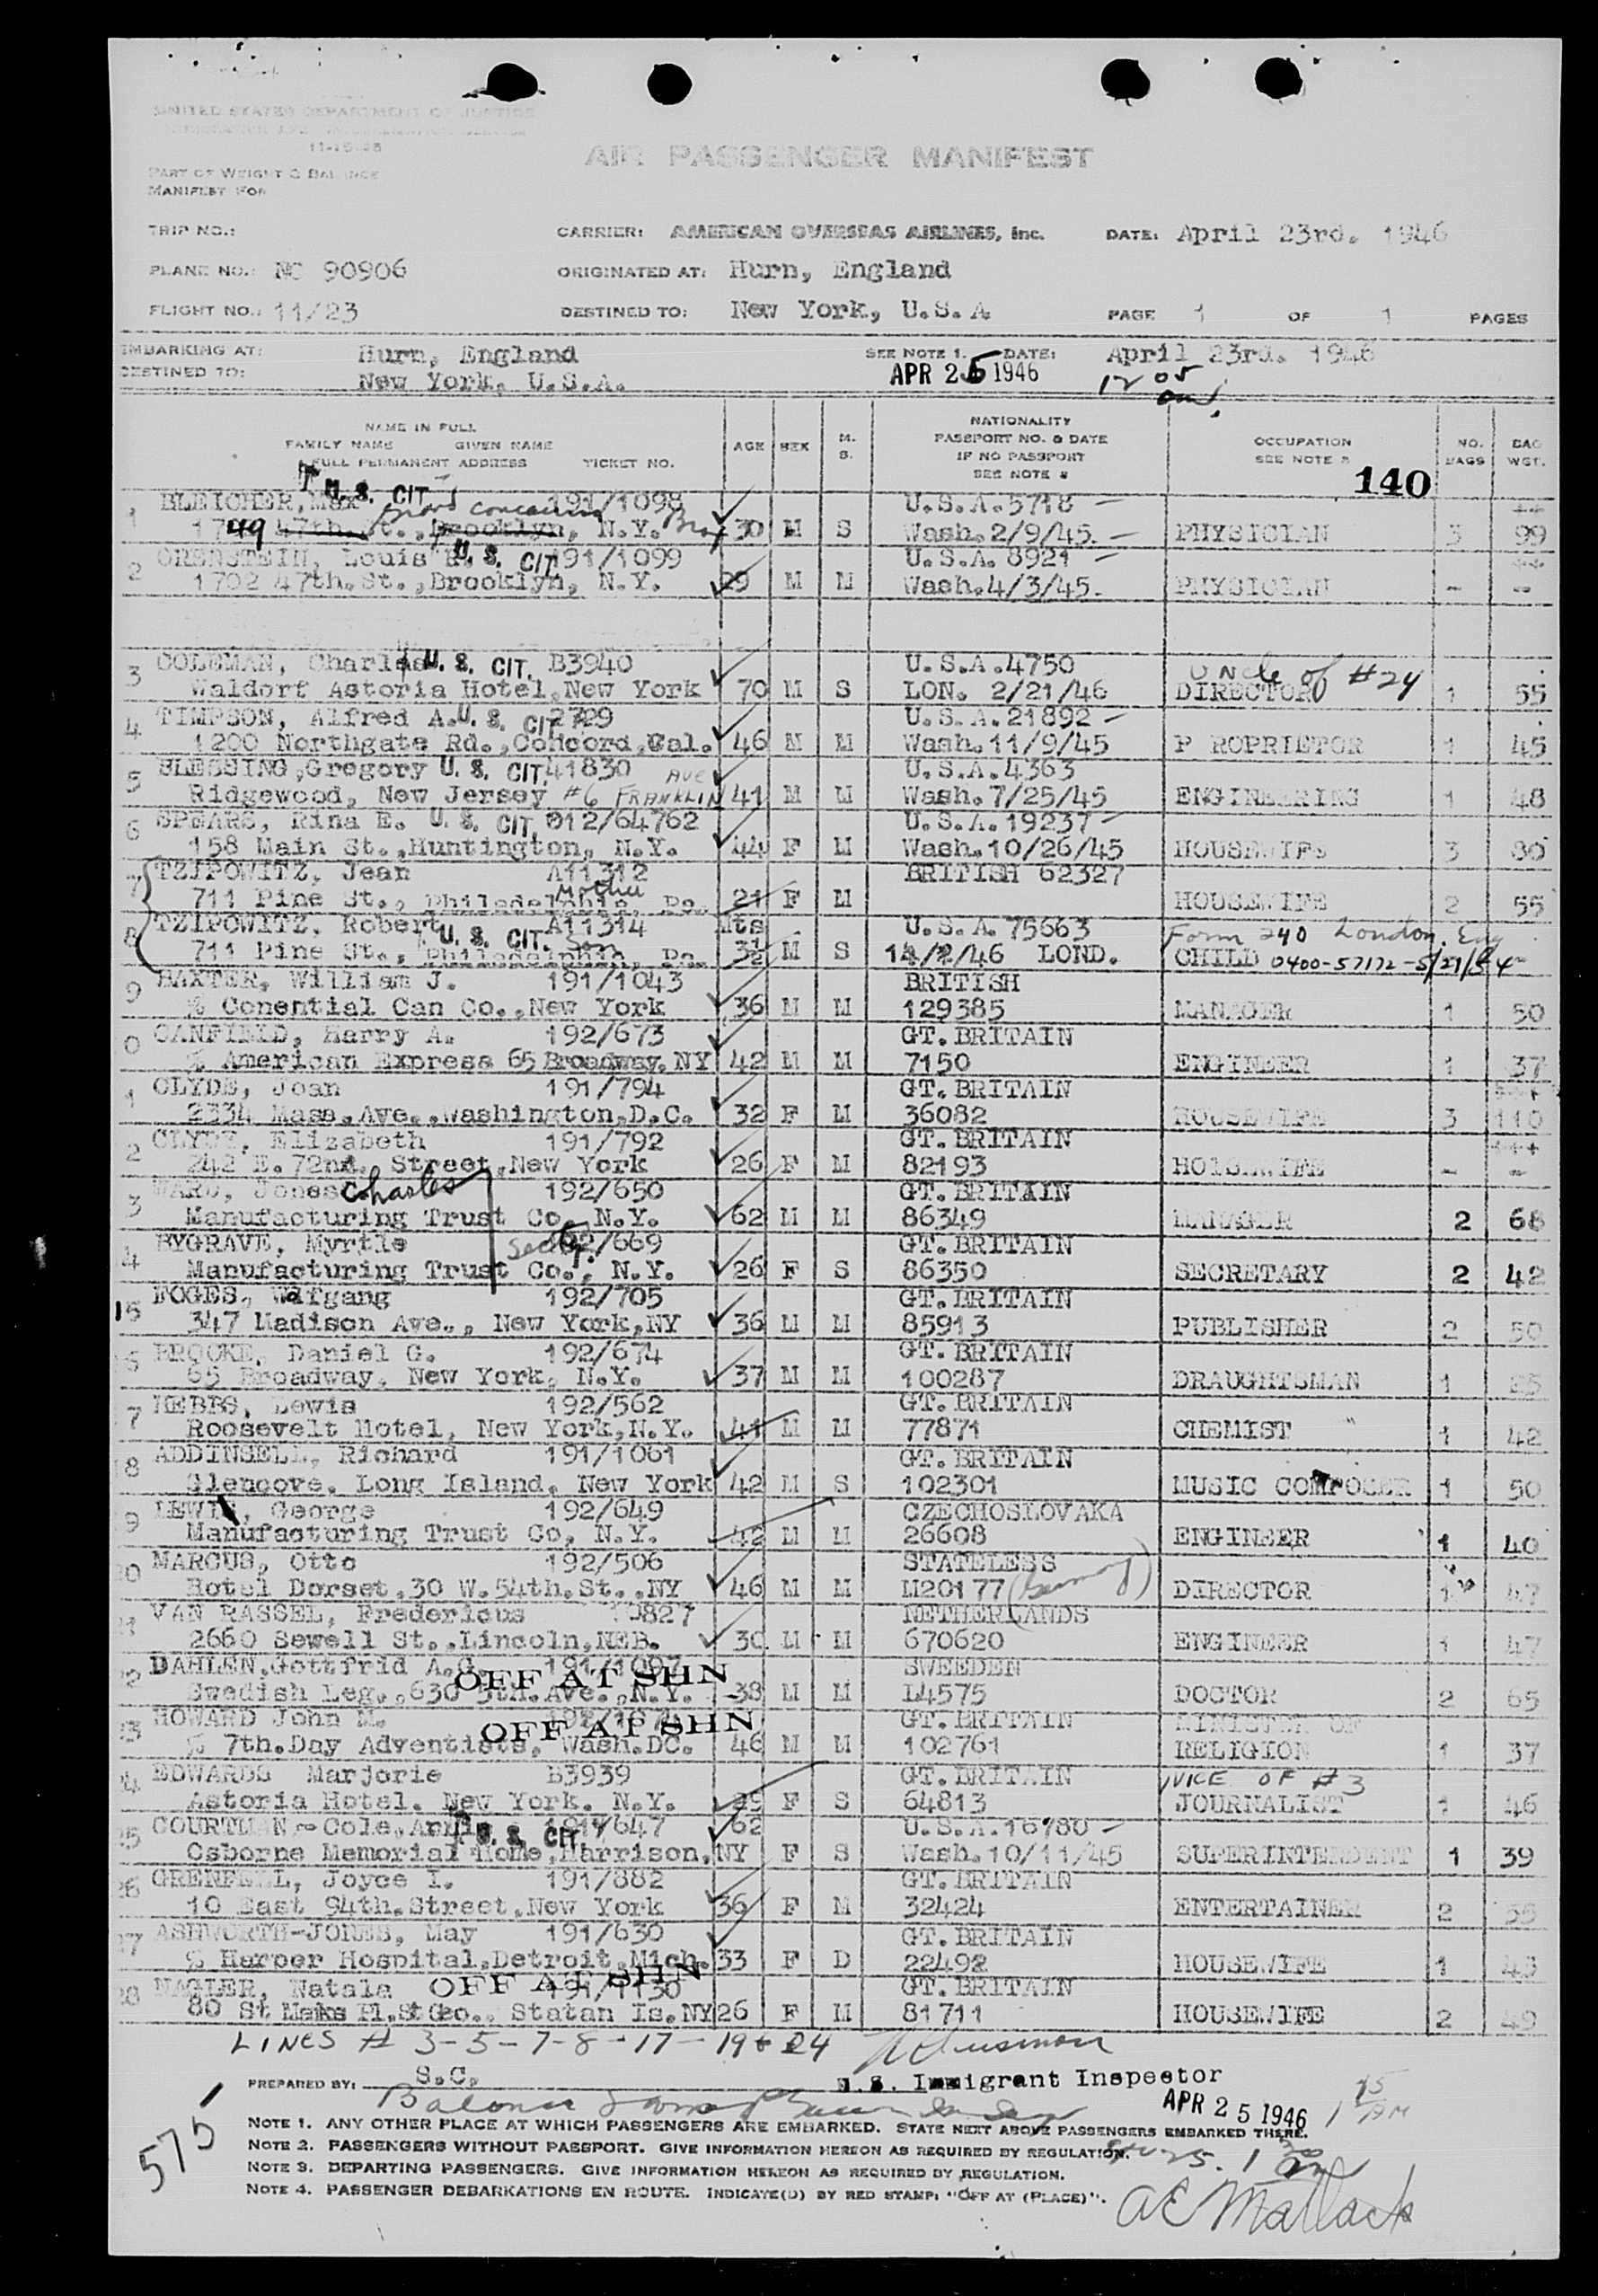 UNITED STATES DEPARTMENT OF JUSTICE
11-15-45
PART OF WEIGHT & BALANCE
MANIFEST FOR
AIR PASSENGER MANIFEST
TRIP NO.: CARRIER: AMERICAN OVERSEAS AIRLINES, Inc. DATE: April 23rd. 1946
PLANE NO.: NC 90906 ORIGINATED AT: Hurn, England
FLIGHT NO.: 11/23 DESTINED TO: New York, U.S.A PAGE 1 OF 1 PAGES
EMBARKING AT: Hurn, England SEE NOTE 1. DATE: April 23rd. 1946
DESTINED TO: New York, U.S.A. APR 25 1946 12 05 am
NAME IN FULL
FAMILY NAME GIVEN NAME
FULL PERMANENT ADDRESS TICKET NO. AGE SEX M. S. NATIONALITY PASSPORT NO. & DATE IF NO PASSPORT SEE NOTE 2 OCCUPATION SEE NOTE 3 NO. BAGS BAG WGT.
140
1 BLEICHER, Max U. S. CIT. 191/1098 U.S.A.5718
47th. St., Brooklyn, N.Y. 30 M S Wash.2/9/45. PHYSICIAN 3 99
2 ORENSTEIN, Louis U. S. CIT 191/1099 U.S.A. 8921
1702 47th.St.,Brooklyn, N.Y. 29 M M Wash.4/3/45. PHYSICIAN - -
3 COLEMAN, Charles U. S. CIT. B3940 U.S.A.4750 UNcle of #24
Waldorf Astoria Hotel,New York 70 M S LON. 2/21/46 DIRECTOR 1 55
4 TIMPSON, Alfred A. U. S. CIT 2729 U.S.A.21892
1200 Northgate Rd.,Concord,Cal. 46 M M Wash.11/9/45 P ROPRIETOR 1 45
5 BLESSING,Gregory U. S. CIT. 41830 AVE U.S.A.4363
Ridgewood, New Jersey #6 FRANKLIN 41 M M Wash.7/25/45 ENGINEERING 1 48
6 SPEARS, Rina E. U. S. CIT. 012/64762 U.S.A.19237
158 Main St.,Huntington, N.Y. 44 F M Wash.10/26/45 HOUSEWIFE 3 80
7 TZIPOWITZ, Jean A11312 BRITISH 62327
711 Pine St., Philadelphia, Pa. Mother 21 F M HOUSEWIFE 2 55
8 TZIPOWITZ, Robert U. S. CIT. A11314 Mts U.S.A. 75663 Form 240 London, Eng
711 Pine St., Philadelphia, Pa. Son 3½ M S 14/2/46 LOND. CHILD 0400-57172-5/27/54
9 BAXTER, William J. 191/1043 BRITISH
% Conential Can Co.,New York 36 M M 129385 MANAGER 1 50
0 CANFIELD, Harry A. 192/673 GT.BRITAIN
% American Express 65 Broadway.NY 42 M M 7150 ENGINEER 1 37
1 CLYDE, Joan 191/794 GT.BRITAIN
2334 Mass.Ave.,Washington,D.C. 32 F M 36082 HOUSEWIFE 3 110
2 CLYDE, Elizabeth 191/792 GT.BRITAIN
242 E.72nd. Street,New York 26 F M 82193 HOUSEWIFE - -
3 WARD, Jones Charles 192/650 GT.BRITAIN
Manufacturing Trust Co, N.Y. 62 M M 86349 MANAGER 2 68
4 BYGRAVE, Myrtle 192/669 GT.BRITAIN
Manufacturing Trust Co., N.Y. 26 F S 86350 SECRETARY 2 42
15 FOGES, Wolfgang 192/705 GT.BRITAIN
347 Madison Ave., New York,NY 36 M M 85913 PUBLISHER 2 50
16 BROOKE, Daniel G. 192/674 GT.BRITAIN
65 Broadway, New York, N.Y. 37 M M 100287 DRAUGHTSMAN 1
17 HEBBS, Lewis 192/562 GT.BRITAIN
Roosevelt Hotel, New York,N.Y. 41 M M 77871 CHEMIST 1 42
18 ADDINSELL, Richard 191/1061 GT.BRITAIN
Glencove, Long Island, New York 42 M S 102301 MUSIC COMPOSER 1 50
19 LEWI, George 192/649 CZECHOSLOVAKA
Manufacturing Trust Co, N.Y. 42 M M 26608 ENGINEER 1 40
20 MARCUS, Otto 192/506 STATELESS
Hotel Dorset,30 W.54th.St.,NY 46 M M M20177 (Germany) DIRECTOR 1 47
21 VAN RASSEL, Fredericus 10827 NETHERLANDS
2660 Sewell St.,Lincoln,NEB. 30 M M 670620 ENGINEER 1 47
22 DAHLEN,Gottfrid A.G. 191/1097 OFF AT SHN SWEEDEN
Swedish Leg.,630 5th.Ave.,N.Y. 38 M M 14575 DOCTOR 2 65
23 HOWARD John M. OFF AT SHN GT.BRITAIN MINISTER OF
% 7th.Day Adventists, Wash.DC. 46 M M 102761 RELIGION 1 37
24 EDWARDS Marjorie B3939 GT.BRITAIN NICE OF #3
Astoria Hotel. New York. N.Y. F S 64813 JOURNALIST 1 46
25 COURTMAN - Cole, U. S. CIT 191/647 62 U.S.A.16780
Osborne Memorial Home,Harrison,NY F S Wash.10/11/45 SUPERINTENDENT 1 39
26 GRENFELL, Joyce I. 191/882 GT.BRITAIN
10 East 94th.Street,New York 36 F M 32424 ENTERTAINER 2 55
27 ASHWORTH-JONES, May 191/630 GT.BRITAIN
% Harper Hospital,Detroit,Mich. 33 F D 22492 HOUSEWIFE 1 43
28 NAGLER, Natala OFF AT SHN 191/1130 GT.BRITAIN
80 St Maks Pl.St Geo., Statan Is.NY 26 F M 81711 HOUSEWIFE 2 49
LINES # 3-5-7-8-17-19 & 24
PREPARED BY: S.C. U.S. Immigrant Inspector
APR 25 1946
NOTE 1. ANY OTHER PLACE AT WHICH PASSENGERS ARE EMBARKED. STATE NEXT ABOVE PASSENGERS EMBARKED THERE.
NOTE 2. PASSENGERS WITHOUT PASSPORT. GIVE INFORMATION HEREON AS REQUIRED BY REGULATION.
NOTE 3. DEPARTING PASSENGERS. GIVE INFORMATION HEREON AS REQUIRED BY REGULATION.
NOTE 4. PASSENGER DEBARKATIONS EN ROUTE. INDICATE(D) BY RED STAMP: "OFF AT (PLACE)".
575
AE Mallack